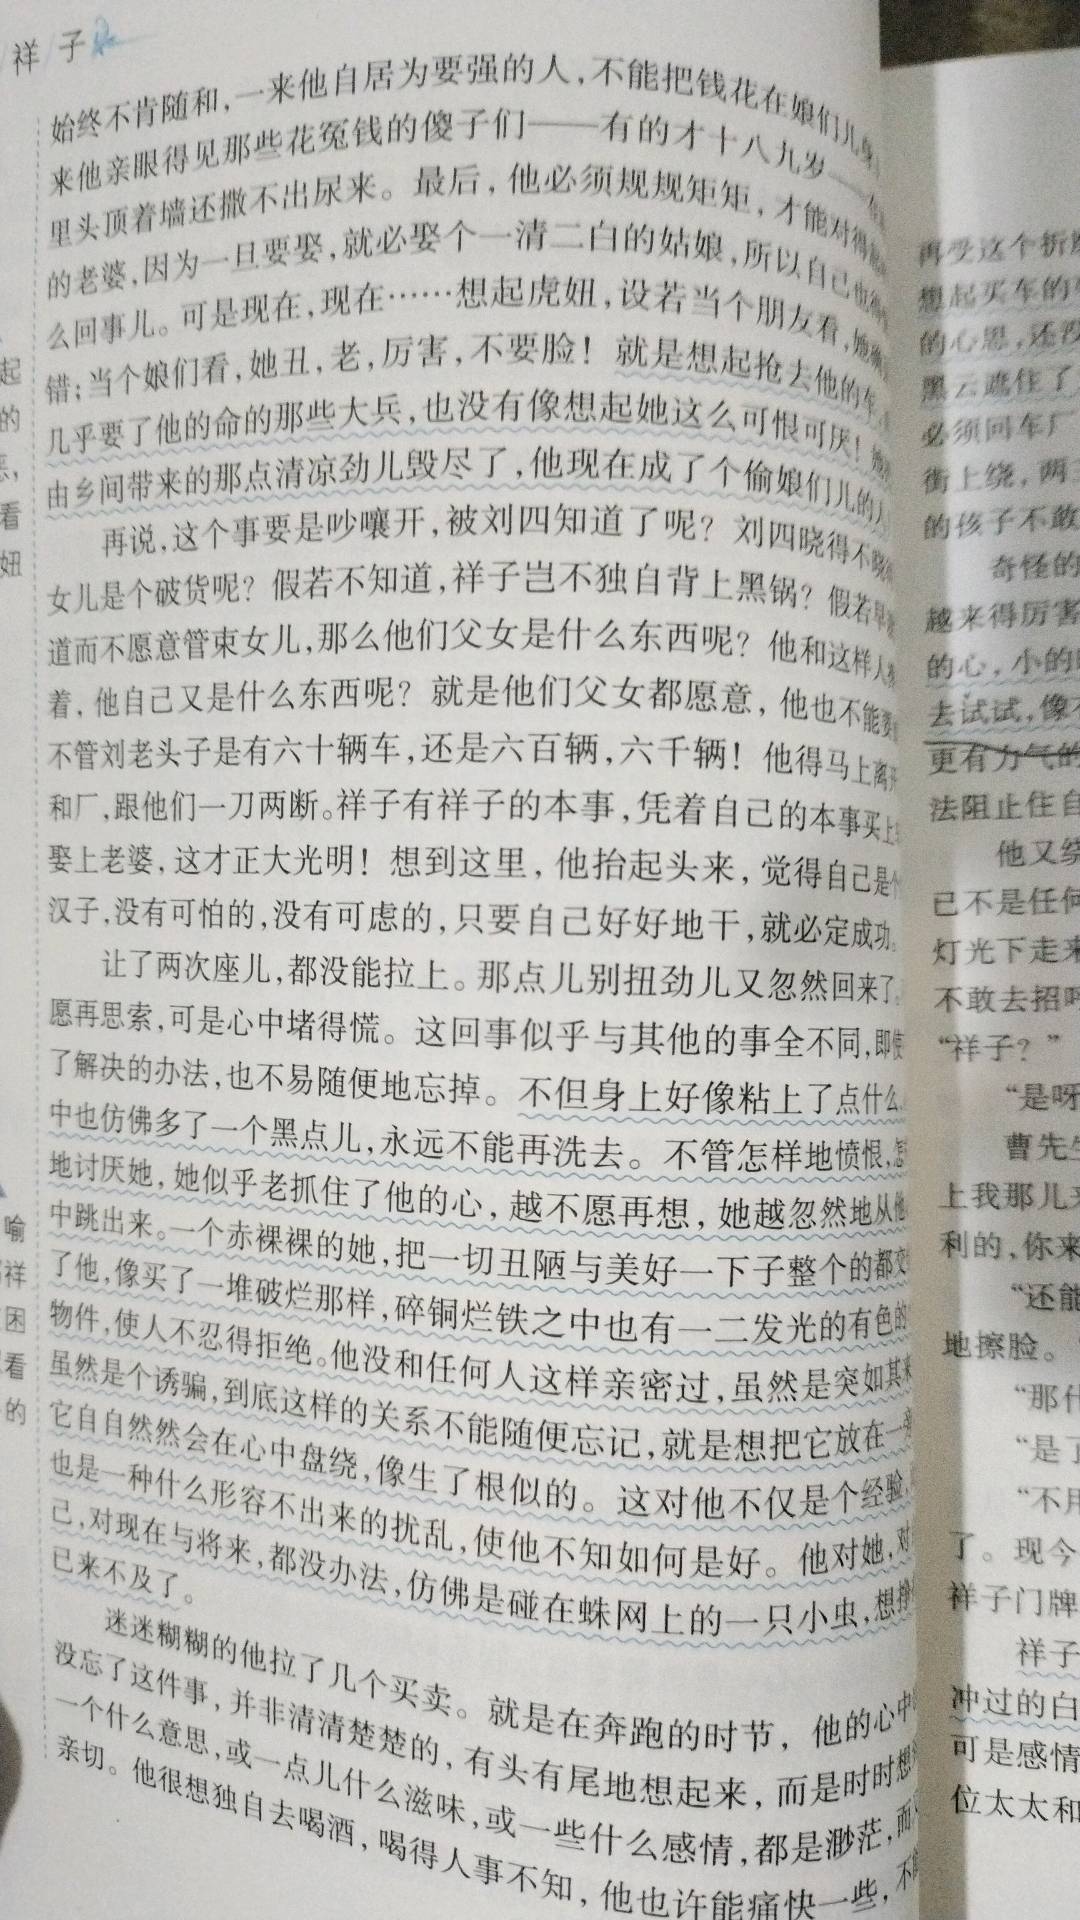 祥子
始终不肯随和,一来他自居为要强的人,不能把钱花在娘们儿身
来他亲眼得见那些花冤钱的傻子们——有的才十八九岁——
里头顶着墙还撒不出尿来。最后,他必须规规矩矩,才能对得
的老婆,因为一旦要娶,就必娶个一清二白的姑娘,所以自己也得
么回事儿。可是现在,现在……想起虎妞,设若当个朋友看,她确
错;当个娘们看,她丑,老,厉害,不要脸!就是想起抢去他的车,
几乎要了他的命的那些大兵,也没有像想起她这么可恨可厌!
由乡间带来的那点清凉劲儿毁尽了,他现在成了个偷娘们儿的人
再说,这个事要是吵嚷开,被刘四知道了呢?刘四晓得不晓
女儿是个破货呢?假若不知道,祥子岂不独自背上黑锅?假若早
道而不愿意管束女儿,那么他们父女是什么东西呢?他和这样人
着,他自己又是什么东西呢?就是他们父女都愿意,他也不能要
不管刘老头子是有六十辆车,还是六百辆,六千辆!他得马上离开
和厂,跟他们一刀两断。祥子有祥子的本事,凭着自己的本事买上
娶上老婆,这才正大光明!想到这里,他抬起头来,觉得自己是个
汉子,没有可怕的,没有可虑的,只要自己好好地干,就必定成功。
让了两次座儿,都没能拉上。那点儿别扭劲儿又忽然回来了。
愿再思索,可是心中堵得慌。这回事似乎与其他的事全不同,即使
了解决的办法,也不易随便地忘掉。不但身上好像粘上了点什么,
中也仿佛多了一个黑点儿,永远不能再洗去。不管怎样地愤恨,怎
地讨厌她,她似乎老抓住了他的心,越不愿再想,她越忽然地从他
中跳出来。一个赤裸裸的她,把一切丑陋与美好一下子整个的都交
了他,像买了一堆破烂那样,碎铜烂铁之中也有一二发光的有色的
物件,使人不忍得拒绝。他没和任何人这样亲密过,虽然是突如其来
虽然是个诱骗,到底这样的关系不能随便忘记,就是想把它放在一旁
它自自然然会在心中盘绕,像生了根似的。这对他不仅是个经验,
也是一种什么形容不出来的扰乱,使他不知如何是好。他对她,对
己,对现在与将来,都没办法,仿佛是碰在蛛网上的一只小虫,想挣
已来不及了。
迷迷糊糊的他拉了几个买卖。就是在奔跑的时节,他的心中
没忘了这件事,并非清清楚楚的,有头有尾地想起来,而是时时想
一个什么意思,或一点儿什么滋味,或一些什么感情,都是渺茫,而
亲切。他很想独自去喝酒,喝得人事不知,他也许能痛快一些,不
起
的
看
妞
喻
祥
困
看
的
再受这个折
想起买车的
的心思,还没
黑云遮住了
必须回车厂
街上绕,两
的孩子不敢
奇怪的
越来得厉害
的心,小的
去试试,像
更有力气的
法阻止住自
他又绕
己不是任何
灯光下走来
不敢去招呼
“祥子?”
“是呀
曹先生
上我那儿
利的,你来
“还能
地擦脸。
“那什
“是了
“不用
了。现今
祥子门牌
祥子
冲过的白
可是感情
位太太和